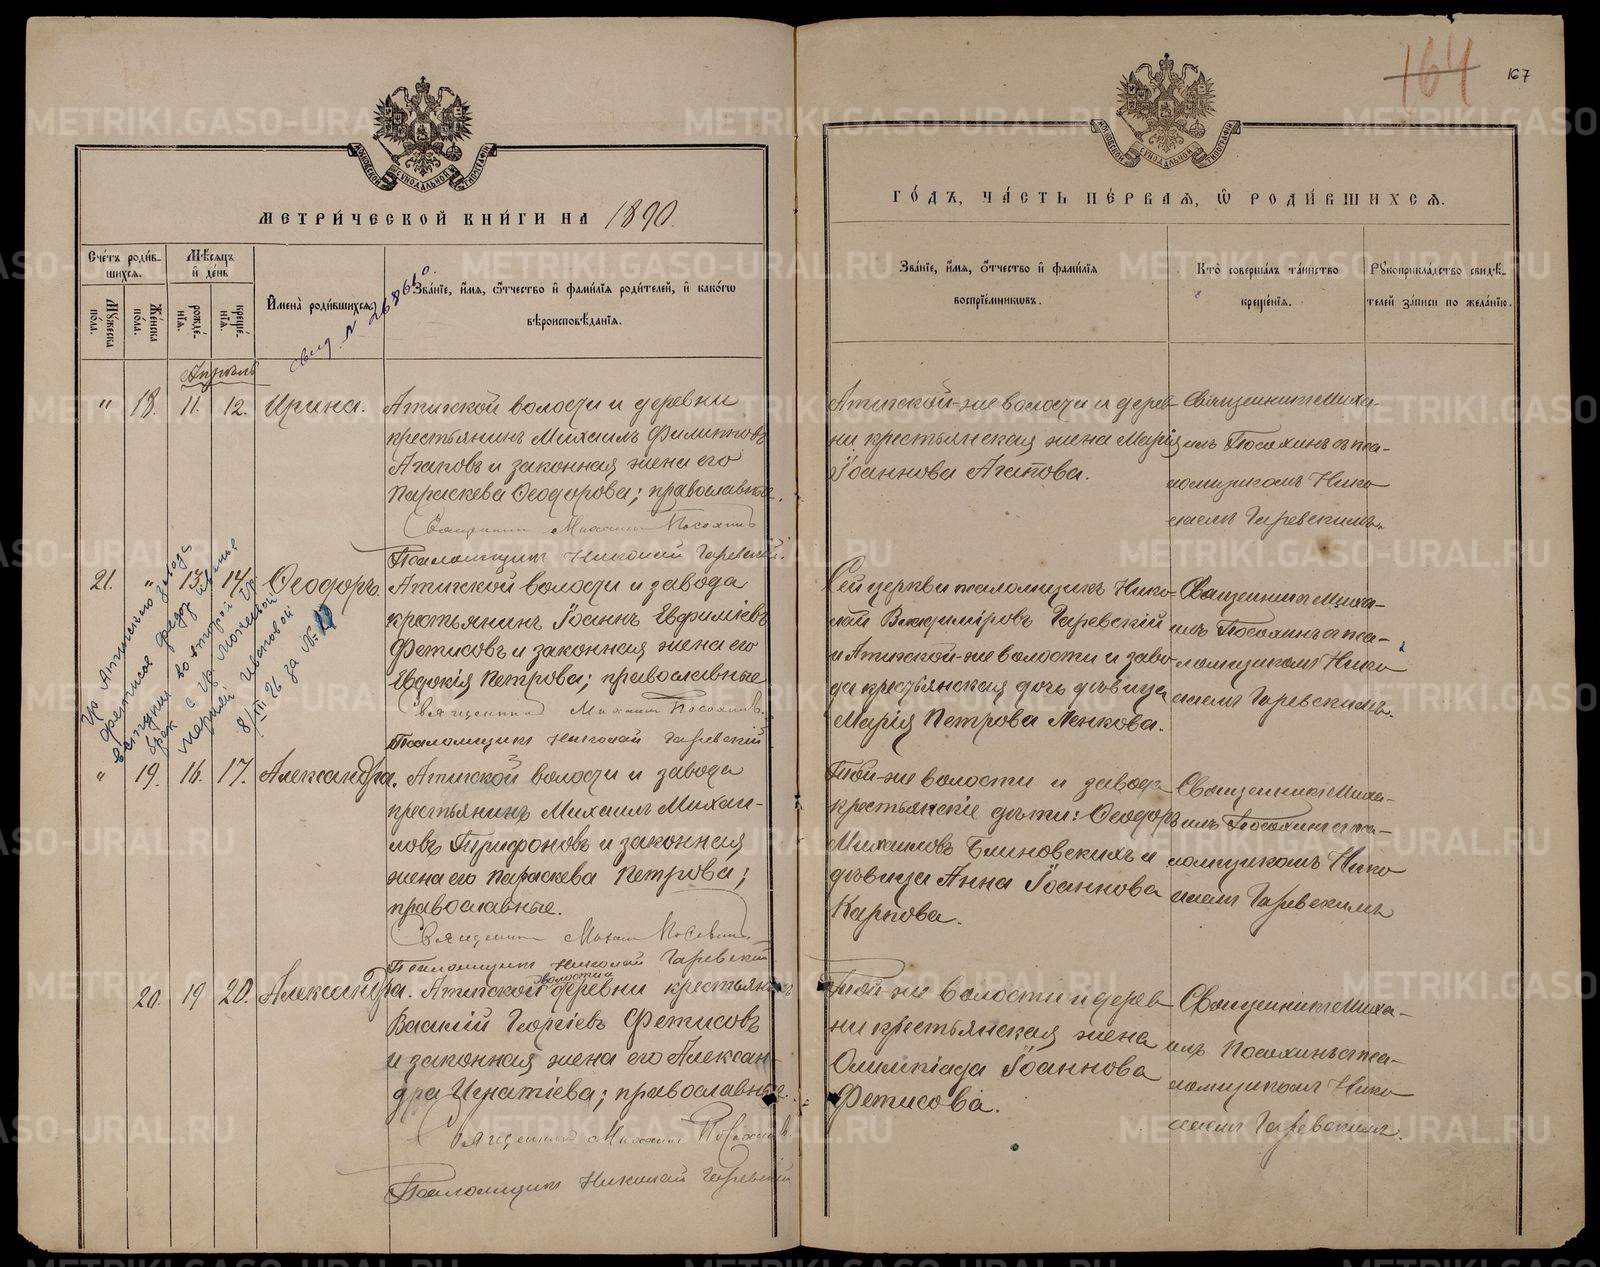 164
167
МОСКОВСКОЙ СѴНОДАЛЬНОЙ ТИПОГРАФІИ
МЕТРИ́ЧЕСКОЙ КНИ́ГИ НА 1890.
Сче́тъ роди́в-
шихся.
Му́жеска по́ла.
Же́нска по́ла.
Мѣ́сяцъ и де́нь
рожде́-
нія.
креще́-
нія.
И҆мена̀ роди́вшихся.
Зва́ніе, и҆́мя, ѻ҆́тчество и҆ фамѵ́лія роди́телей, и҆ како́гѡ
вѣроисповѣ́данія.
свид. N 26861
Апрѣль
" 18. 11. 12. Ирина.
Атигской волости и деревни
крестьянинъ Михаилъ Филипповъ
Агаповъ и законная жена его
Параскева Ѳеодорова; православные.
Священникъ Михаилъ Посохинъ
Псаломщикъ Николай Гаревскій.
21. " 13. 14. Ѳеодоръ.
Атигской волости и завода
крестьянинъ Іоаннъ Евфиміевъ
Фетисовъ и законная жена его
Евдокія Петрова; православные
Священникъ Михаилъ Посохинъ.
Псаломщикъ Николай Гаревскій
Гр Атигского завода
Фетисов Федор Иванов
вступил во второй
брак с гр.
Марией Ивановой
8/III 26 за №
" 19. 16. 17. Александра.
Атигской волости и завода
крестьянинъ Михаилъ Михаи-
ловъ Трифоновъ и законная
жена его Параскева Петрова;
православные.
Священникъ Михаилъ Посохинъ
Псаломщикъ Николай Гаревскій
20. 19 20. Александра.
Атигской волости и деревни крестьянинъ
Василій Георгіевъ Фетисовъ
и законная жена его Алексан-
дра Игнатіева; православные.
Священникъ Михаилъ Посохинъ
Псаломщикъ Николай Гаревскій
МОСКОВСКОЙ СѴНОДАЛЬНОЙ ТИПОГРАФІИ
ГО́ДЪ, ЧА́СТЬ ПЕ́РВАЯ, Ѽ РОДИ́ВШИХСЯ.
Зва́ніе, и҆́мя, ѻ҆́тчество и҆ фамѵ́лія
воспріе́мникωвъ.
Кто̀ соверша́лъ та́инство
креще́нія.
Рꙋкоприкла́дство свидѣ́-
телей за́писи по жела́нію.
Атигской-же волости и дерев-
ни крестьянская жена Марія
Іоаннова Агапова.
Священникъ Миха-
илъ Посохинъ съ пса-
ломщикомъ Нико
лаемъ Гаревскимъ.
Сей церкви псаломщикъ Нико-
лай Владиміровъ Гаревскій
и Атигской-же волости и заво
да крестьянская дочь дѣвица
Марія Петрова Ленкова.
Священникъ Миха-
илъ Посохинъ съ пса-
ломщикомъ Нико
лаемъ Гаревскимъ.
Той-же волости и завода
крестьянскіе дѣти: Ѳеодоръ
Михаиловъ Блиновскихъ и
дѣвица Анна Іоаннова
Карпова.
Священникъ Миха-
илъ Посохинъ съ пса-
ломщикомъ Нико
лаемъ Гаревскимъ
Той-же волости и дерев
ни крестьянская жена
Олимпіада Іоаннова
Фетисова.
Священникъ Миха-
илъ Посохинъ съ пса-
ломщикомъ Нико
лаемъ Гаревскимъ.
METRIKI.GASO-URAL.RU